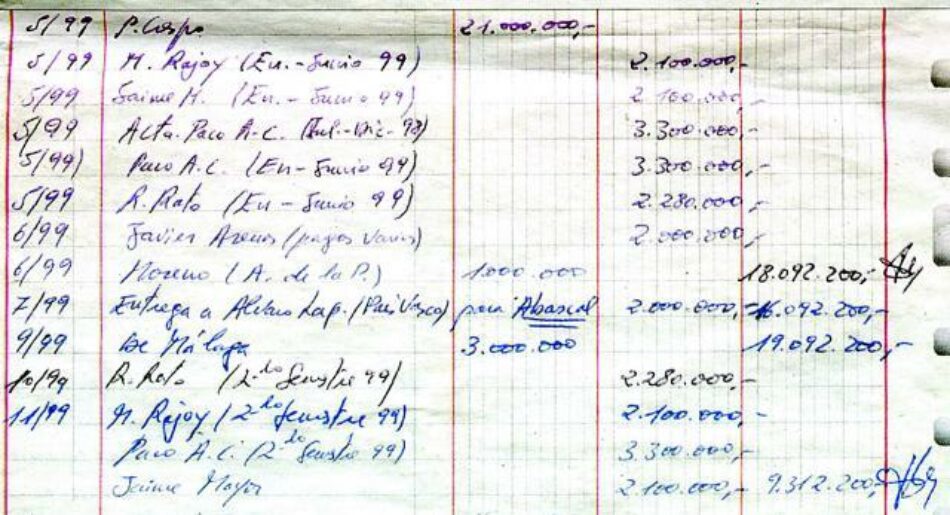 5/99 P. Crespo 21.000.000,-
5/99 M. Rajoy (En.-Junio 99) 2.100.000,-
5/99 Jaime M. (En.-Junio 99) 2.100.000,-
5/99 Acta. Paco A-C. (Jul.-Dic.-98) 3.300.000,-
5/99) Paco A.C. (En-Junio 99) 3.300.000,-
5/99 R. Rato (En-Junio 99) 2.280.000,-
6/99 Javier Arenas (pagos varios) 2.000.000,-
6/99 Moreno (A. de la P.) 1.000.000 18.092.200,-
7/99 Entrega a Alvaro Lap. (País Vasco) para Abascal 2.000.000,- 16.092.200,-
9/99 De Málaga 3.000.000 19.092.200,-
10/99 R. Rato (2º Semestre 99) 2.280.000,-
11/99 M. Rajoy (2do Semestre 99) 2.100.000,-
Paco A.C. (2do Semestre 99) 3.300.000,-
Jaime Mayor 2.100.000,- 9.312.200,-